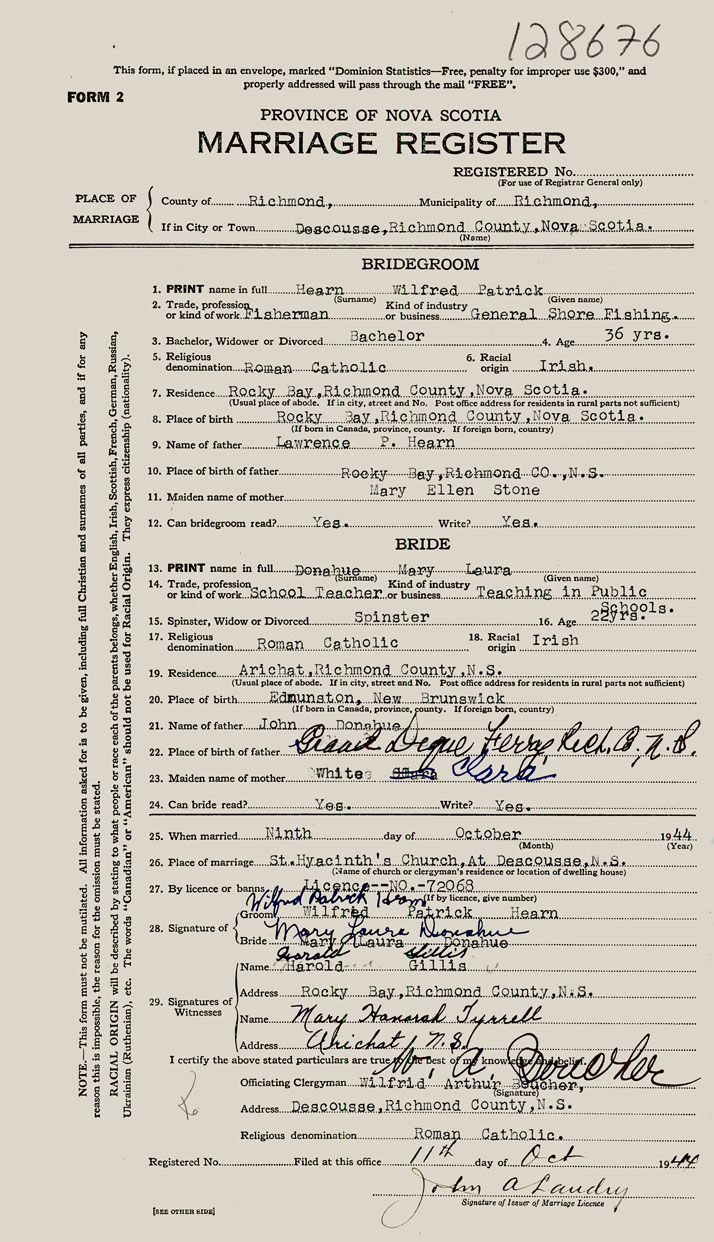 128676
This form, if placed in an envelope, marked "Dominion Statistics—Free, penalty for improper use $300," and
properly addressed will pass through the mail "FREE".
FORM 2
PROVINCE OF NOVA SCOTIA
MARRIAGE REGISTER
REGISTERED No.
(For use of Registrar General only)
PLACE OF MARRIAGE
County of Richmond, Municipality of Richmond,
If in City or Town Descousse, Richmond County, Nova Scotia.
(Name)
BRIDEGROOM
1. PRINT name in full Hearn Wilfred Patrick
(Surname) (Given name)
2. Trade, profession or kind of work Fisherman Kind of industry or business General Shore Fishing.
3. Bachelor, Widower or Divorced Bachelor 4. Age 36 yrs.
5. Religious denomination Roman Catholic 6. Racial origin Irish.
7. Residence Rocky Bay, Richmond County, Nova Scotia.
(Usual place of abode. If in city, street and No. Post office address for residents in rural parts not sufficient)
8. Place of birth Rocky Bay, Richmond County, Nova Scotia.
(If born in Canada, province, county. If foreign born, country)
9. Name of father Lawrence P. Hearn
10. Place of birth of father Rocky Bay, Richmond CO., N.S.
11. Maiden name of mother Mary Ellen Stone
12. Can bridegroom read? Yes. Write? Yes.
BRIDE
13. PRINT name in full Donahue Mary Laura
(Surname) (Given name)
14. Trade, profession or kind of work School Teacher Kind of industry or business Teaching in Public Schools.
15. Spinster, Widow or Divorced Spinster 16. Age 22yrs.
17. Religious denomination Roman Catholic 18. Racial origin Irish
19. Residence Arichat, Richmond County, N.S.
(Usual place of abode. If in city, street and No. Post office address for residents in rural parts not sufficient)
20. Place of birth Edmunston, New Brunswick
(If born in Canada, province, county. If foreign born, country)
21. Name of father John Donahue
22. Place of birth of father Grand Digue Ferry, Rich. Co., N.S.
23. Maiden name of mother White Clara
24. Can bride read? Yes. Write? Yes.
25. When married Ninth day of October 1944
(Month) (Year)
26. Place of marriage St. Hyacinth's Church, At Descousse, N.S.
(Name of church or clergyman's residence or location of dwelling house)
27. By licence or banns Licence--NO.-72068
(If by licence, give number)
28. Signature of
Wilfred Patrick Hearn
Groom Wilfred Patrick Hearn
Mary Laura Donahue
Bride Mary Laura Donahue
29. Signatures of Witnesses
Harold Gillis
Name Harold Gillis
Address Rocky Bay, Richmond County, N.S.
Name Mary Hanorah Tyrrell
Address Arichat, N.S.
I certify the above stated particulars are true to the best of my knowledge and belief.
W. A. Boucher
Officiating Clergyman Wilfrid Arthur Boucher,
(Signature)
Address Descousse, Richmond County, N.S.
Religious denomination Roman Catholic.
Registered No. Filed at this office 11th day of Oct 1944
John A Landry
Signature of Issuer of Marriage Licence
[SEE OTHER SIDE]
NOTE.—This form must not be mutilated. All information asked for is to be given, including full Christian and surnames of all parties, and if for any
reason this is impossible, the reason for the omission must be stated.
RACIAL ORIGIN will be described by stating to what people or race each of the parents belongs, whether English, Irish, Scottish, French, German, Russian,
Ukrainian (Ruthenian), etc. The words "Canadian" or "American" should not be used for Racial Origin. They express citizenship (nationality).